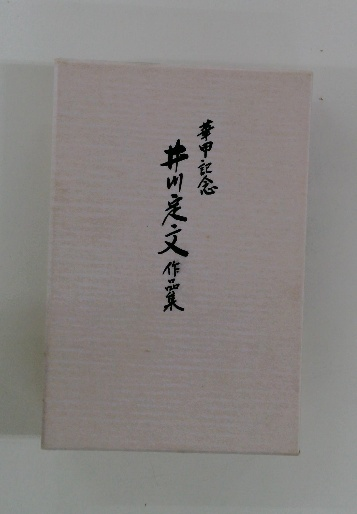 華甲記念
井川定文作品集